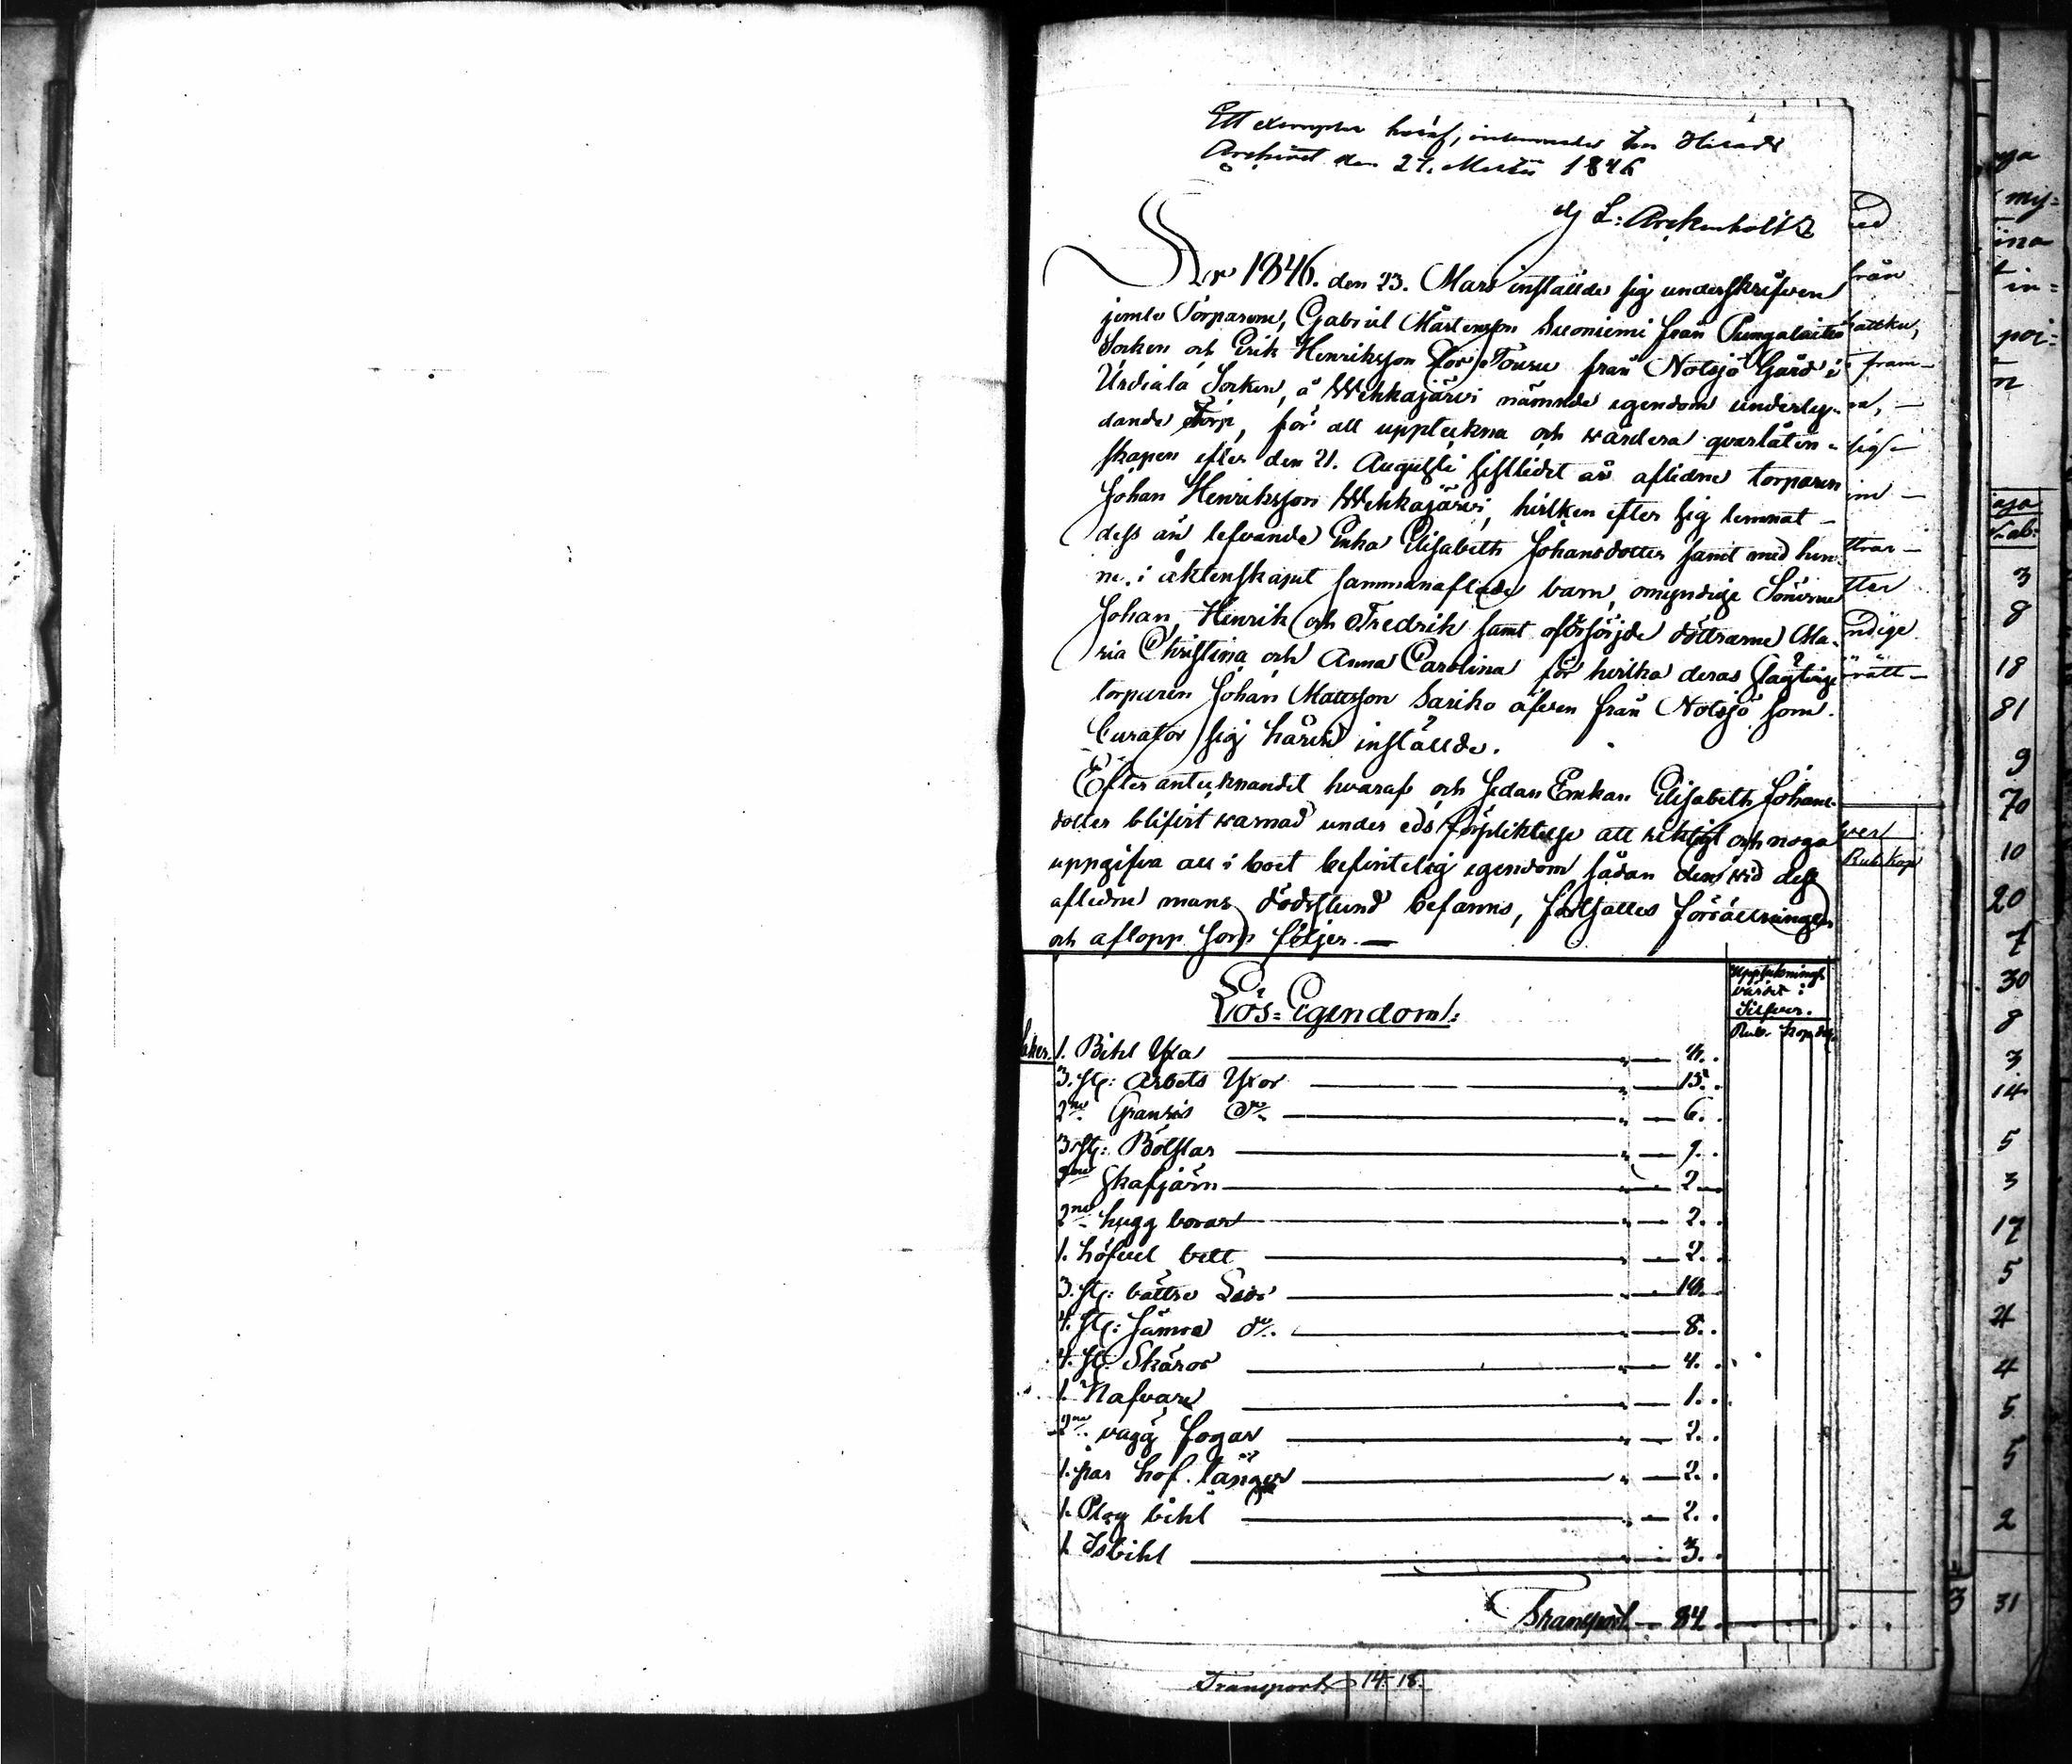 Ett exemplar häraf, inlemnades Härads
Archivet den 21. Martii 1846
L: Arckenholtz
År 1846. den 23. Mars inställde sig underskrifven
jemte Torparene, Gabriel Mårtensson Suoniemi från Pungalaitio
Socken och Erik Henriksson Tourru från Notsjö Gård i
Urdiala Socken, å Wehkajärvi nämnde egendom underly-
dande Torp, för att uppteckna och wärdera qvarlåten-
skapen efter den 21. Augusti sistlidet år aflidne torparen
Johan Henriksson Wehkajärvi, hvilken efter sig lemnat
dess än lefvande Enka Elisabeth Johansdotter samt med hen-
ne i äktenskapet sammanaflade barn, omyndige Sönerne
Johan, Henrik och Fredrik samt oförsörjde döttrarne Ma-
ria Christina och Anna Carolina för hvilka deras slägtinge
torparen Johan Mattsson Sariko äfven från Notsjö som
Curator sig härvid inställde.
Efter antecknandet hvaraf och sedan Enkan Elisabeth Johans-
dotter blifvit warnad under eds förpliktelse att riktigt och noga
uppgifva all i boet befintelig egendom sådan den wid dess
aflidne mans dödsstund befanns, fortsattes förrättningen
och aflopp som följer. —
Lös-Egendom:
Uppteknings
värdet i
Silfver.
Rub. Kop.
1. Bihl Yxa — 4.
3. st: Arbets Yxor — 15.
2ne Granris do — 6.
3 st: Bölstar — 9.
2ne Skafjärn — 2
2ne hugg borar — 2.
1. höfvel bett — 2.
3. st: bättre Liar — 14.
4. st: sämre do — 8.
4. st: Skäror — 4.
1. Nafvare — 1.
2ne vägg fogar — 2.
1. par hof tänger — 2.
1. Plog bihl — 2.
1 Isbihl — 3.
Transport — 84
Transport 14 18.
från
fram-
ttrar —
tter
ndige
Rub. Kop
my-
ina
in-
poi-
3
8
18
81
9
70
10
20
7
30
8
3
14
5
3
17
5
4
4
5
5
2
3 31